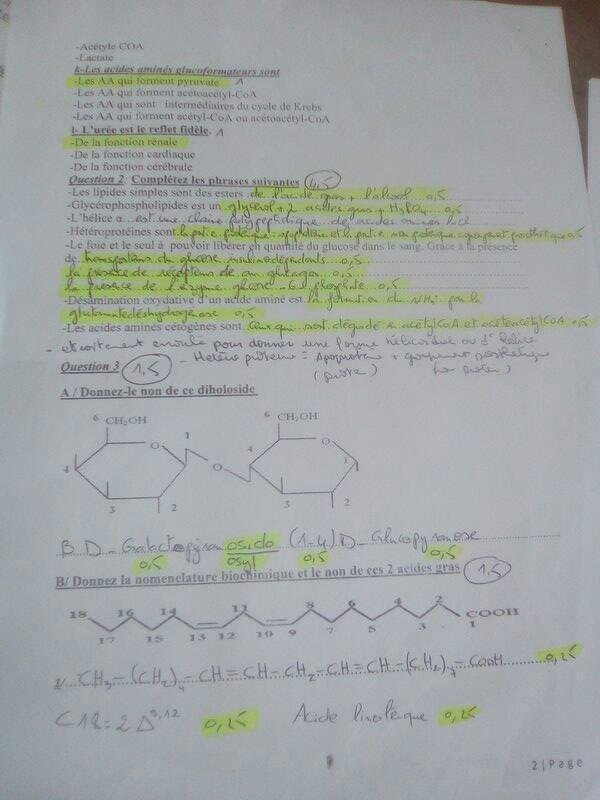 -Acétyle COA
-Lactate
k-Les acides aminés glucoformateurs sont
-Les AA qui forment pyruvate 1
-Les AA qui forment acétoacétyl-CoA
-Les AA qui sont intermédiaires du cycle de Krebs
-Les AA qui forment acétyl-CoA ou acétoacétyl-CoA
l- L'urée est le reflet fidèle. 1
-De la fonction rénale
-De la fonction cardiaque
-De la fonction cérébrale
Question 2. Complétez les phrases suivantes 4,5
-Les lipides simples sont des esters de l'acide gras + l'alcool 0,5
-Glycérophospholipides est un glycérol + 2 acides gras + H3PO4 0,5
-L'hélice α est une chaîne polypeptidique de acides aminés
-Hétéroprotéines sont la partie protéique = apoprotéine et la partie non protéique = groupement prosthétique 0,5
-Le foie et le seul à pouvoir libérer en quantité du glucose dans le sang. Grâce à la présence
de transporteurs du glucose insulinodépendants 0,5
la présence de récepteurs de au glucagon 0,5
la présence de l'enzyme glucose-6 phosphate 0,5
-Désamination oxydative d'un acide aminé est la formation du par la
glutamate déshydrogénase 0,5
-Les acides aminés cétogènes sont ceux qui sont dégradé en acétylCoA et acétoacétylCoA 0,5
- étroitement enroulé pour donner une forme hélicoïdal ou d'hélice
Question 3 1,5 - Hétéro protéine = Apoprotéine + groupement prosthétique
A / Donnez-le non de ce diholoside
6 CH2OH 6 CH2OH
O 1 4 O
4 O 1
3 2 3 2
B D - Galactopyranosido (1-4) D - Glucopyranose
osyl
0,5 0,5 0,5
B/ Donnez la nomenclature biochimique et le non de ces 2 acides gras 1,5
18 16 14 11 8 6 4 2 COOH
17 15 13 12 10 9 7 5 3 1
1/ CH3-(CH2)4-CH=CH-CH2-CH=CH-(CH2)7-COOH 0,25
C18=2 Δ9,12 0,25 Acide linoléique 0,25
2 | Page